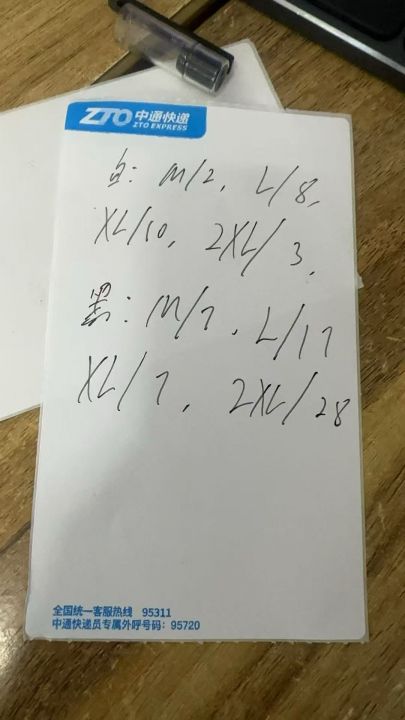 ZTO 中通快递
ZTO EXPRESS
白: M/2, L/8,
XL/10, 2XL/3,
黑: M/7, L/17
XL/7, 2XL/28
全国统一客服热线 95311
中通快递员专属外呼号码: 95720